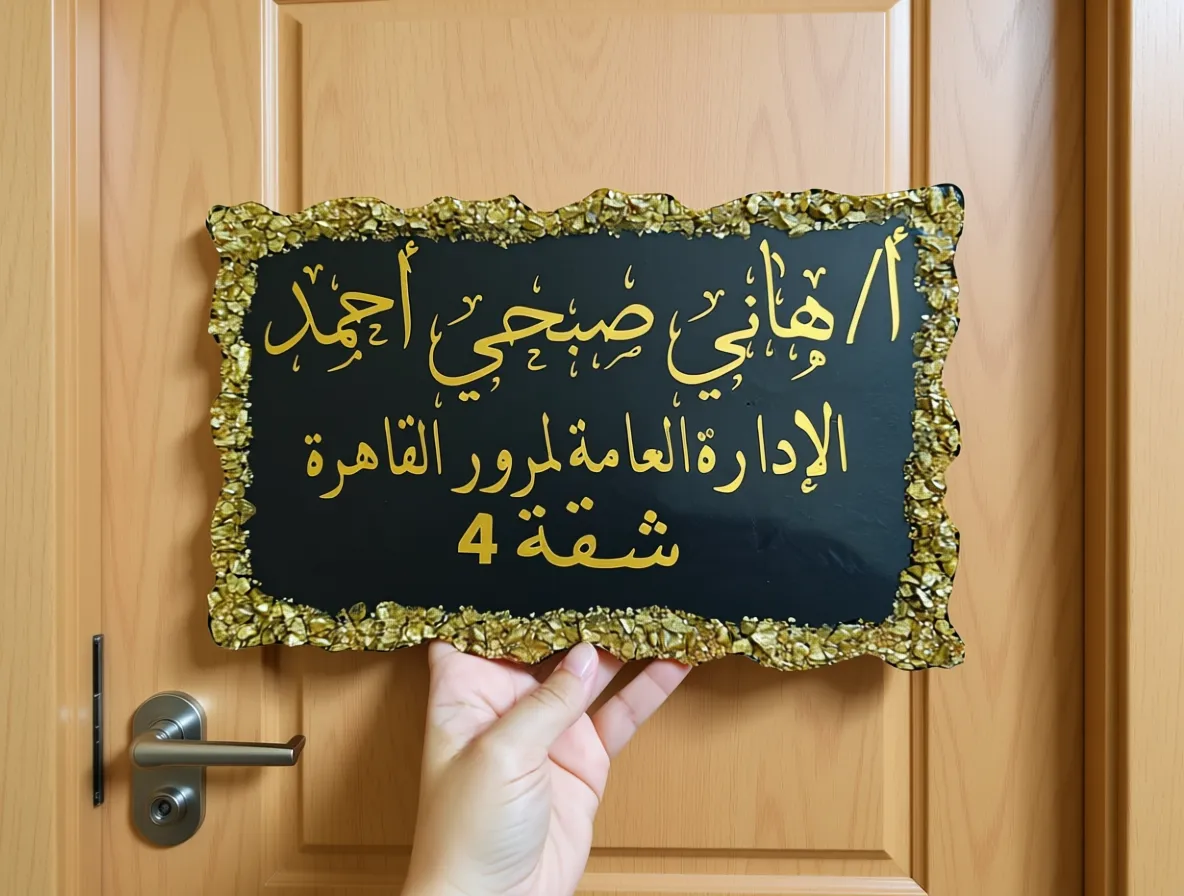 أ/ هاني صبحي أحمد
الإدارة العامة لمرور القاهرة
شقة 4